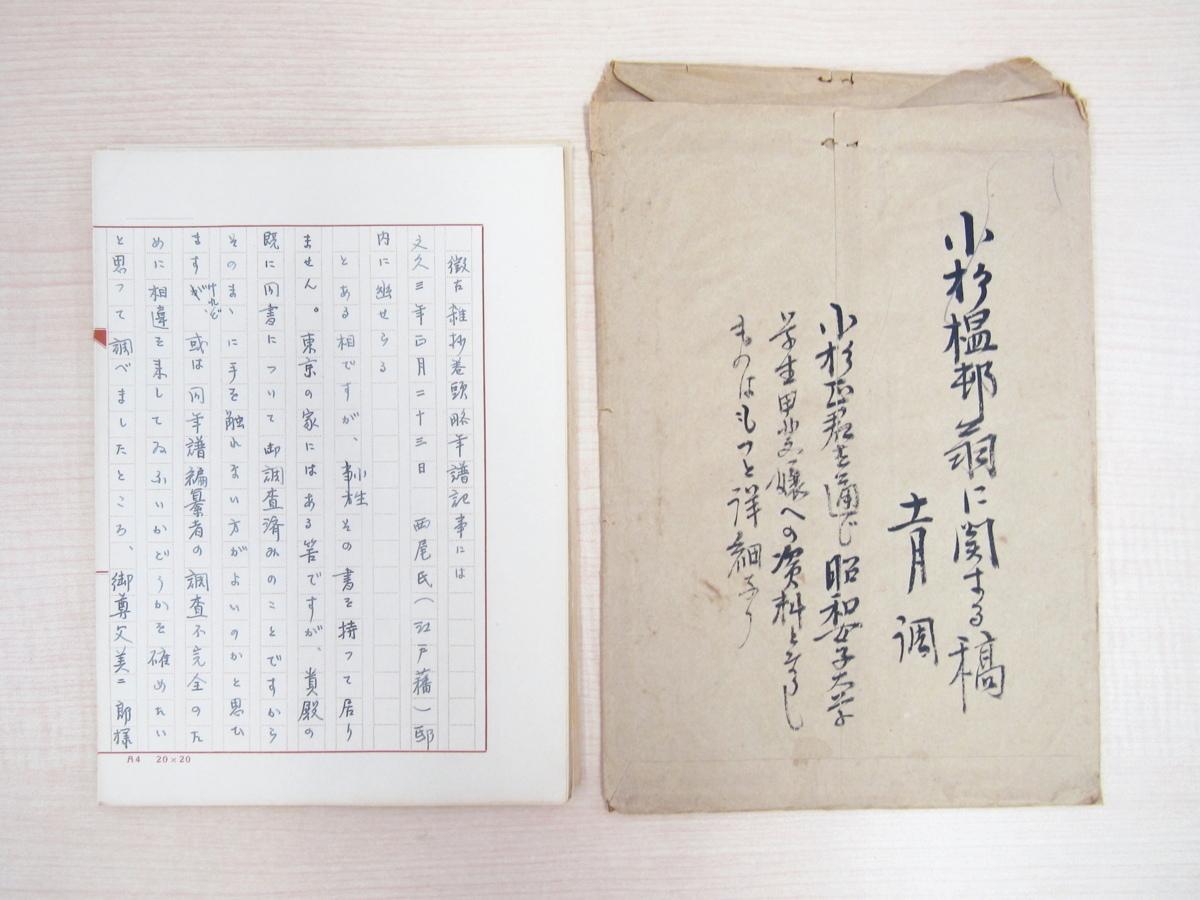 徴古雑抄巻頭略年譜記事には
文久三年正月二十三日 西尾氏(江戸藩)邸
内に幽せらる
とある相ですが、小生その書を持って居り
ません。東京の家にはある筈ですが、貴殿の
既に同書について御調査済みのことですから
そのまゝに手を触れない方がよいのかと思ひ
ますが、けれど或は同年譜編纂者の調査不完全のた
めに相違を来してゐないかどうかを確めたい
と思って調べましたところ、御尊父美二郎様
A4 20×20
小杉榲邨翁に関する稿
十一月調
小杉 君を通じ昭和女子大学
学生甲 嬢への資料となりし
ものはもっと詳細なり